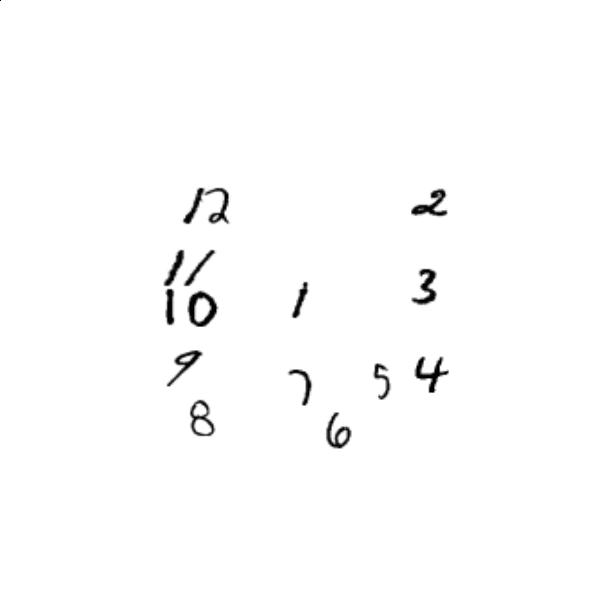 12 2
11
10 1 3
9 7 5 4
8 6